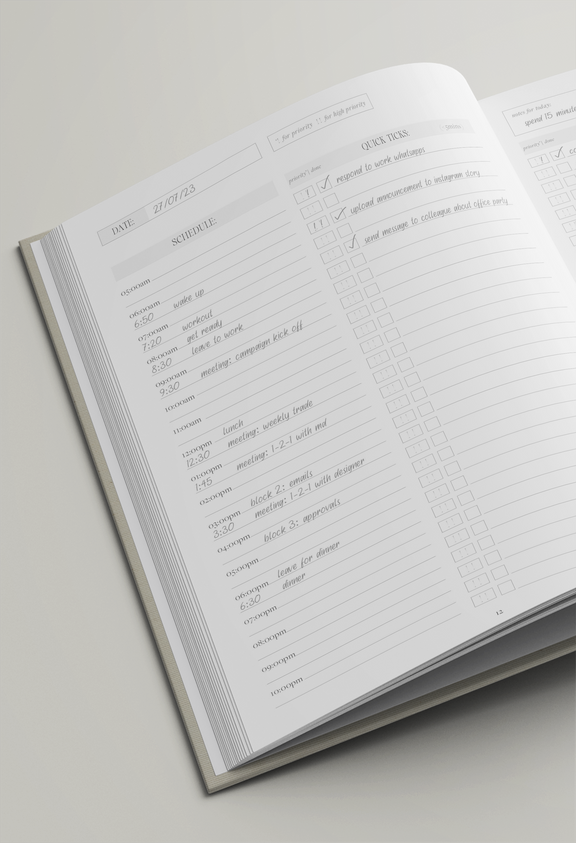 DATE: 27/07/23
for priority !! for high priority
SCHEDULE:
05:00am
06:00am
6:50 wake up
07:00am workout
7:20 get ready
08:00am leave to work
8:30
09:00am meeting: campaign kick off
9:30
10:00am
11:00am
12:00pm lunch
12:30 meeting: weekly trade
01:00pm meeting: 1-2-1 with md
1:45
02:00pm
03:00pm block 2: emails
3:30 meeting: 1-2-1 with designer
04:00pm block 3: approvals
05:00pm
06:00pm leave for dinner
6:30 dinner
07:00pm
08:00pm
09:00pm
10:00pm
QUICK TICKS:
priority | done
! respond to work whatsapps
!! upload announcement to instagram story
send message to colleague about office party
12
notes for today:
spend 15 minute
priority | done
!